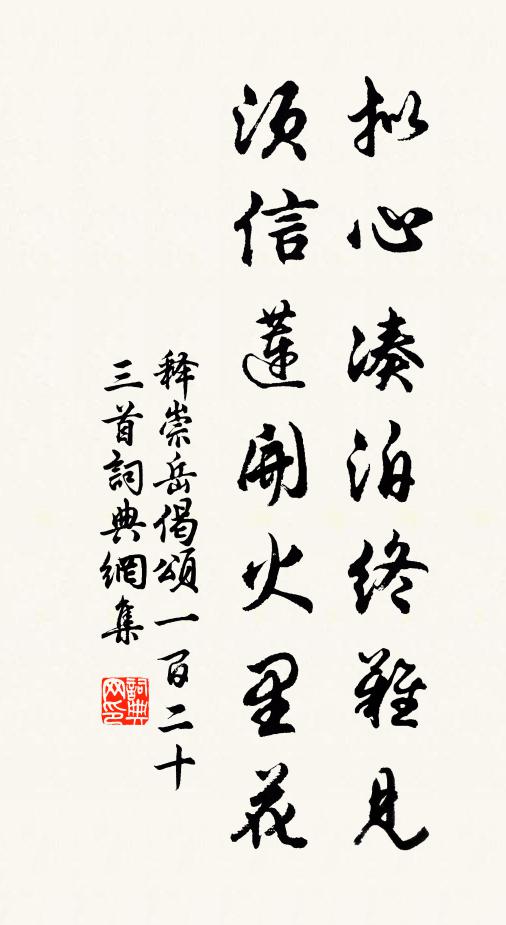 拟心凑泊终难见
须信莲开火里花
释崇岳偈頌一百二十
三首詞典網集
詞典网印